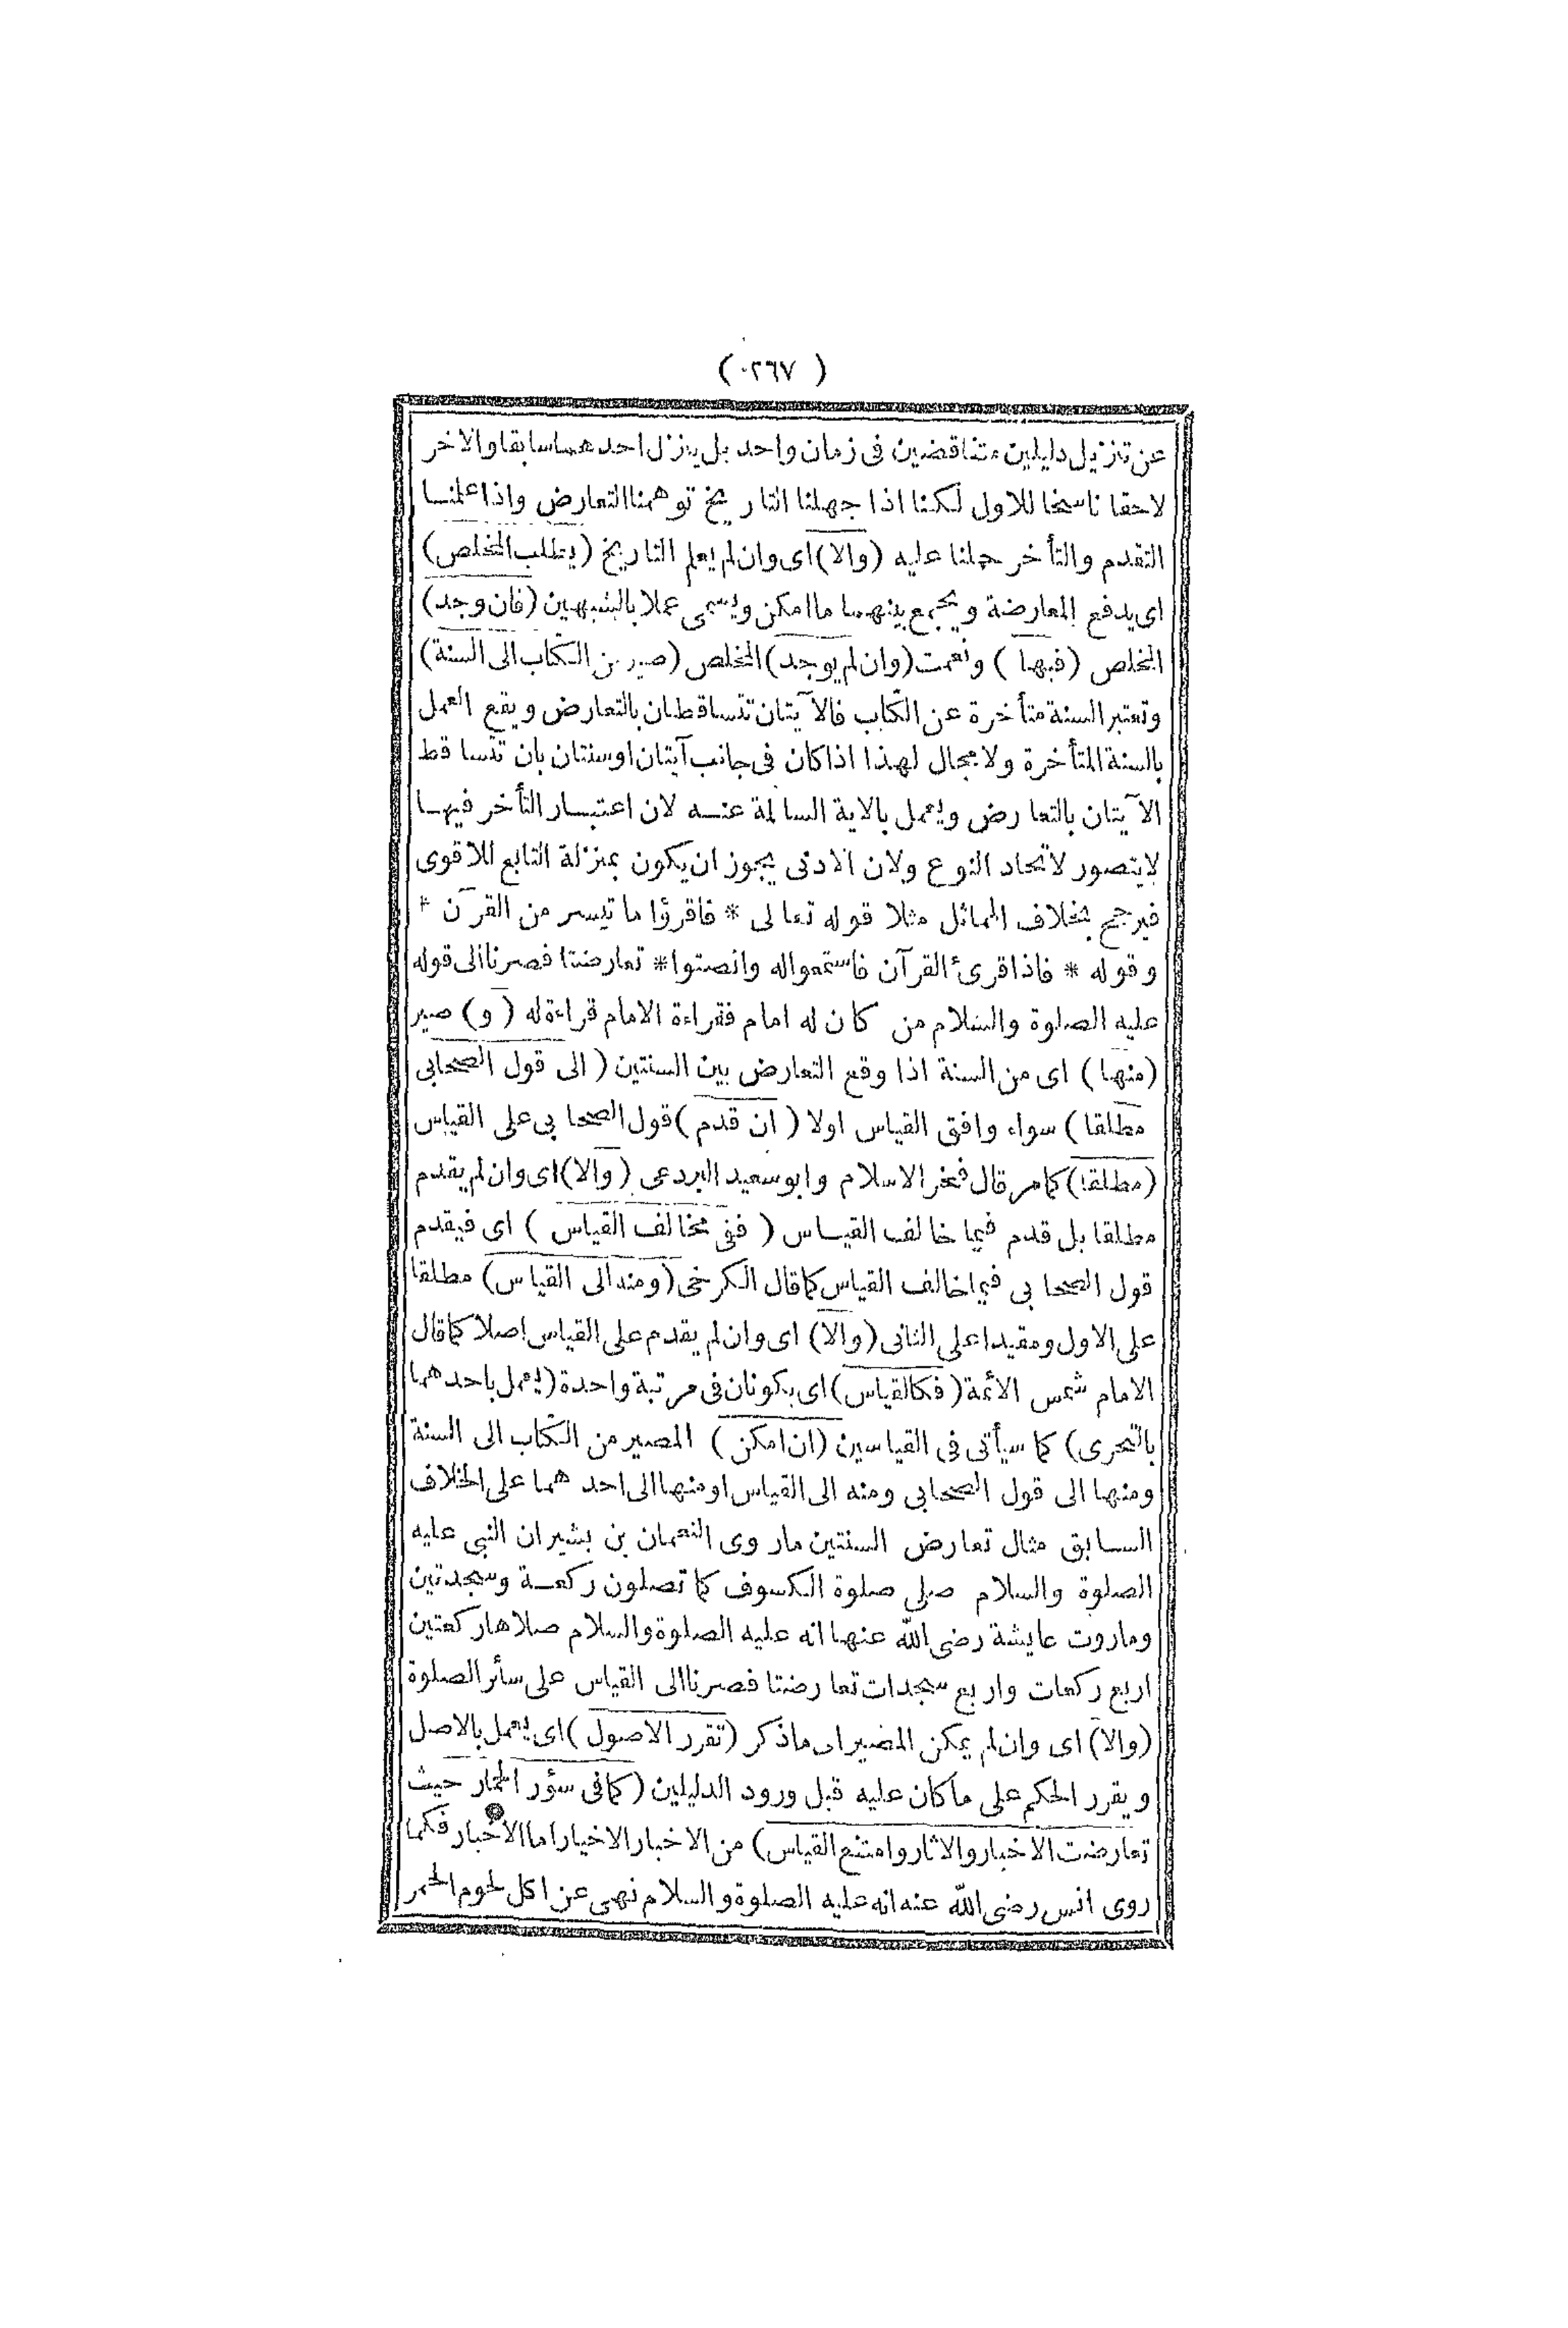 ( ٢٦٧ )
عن تنزيل دليلين متناقضين فى زمان واحد بل ينزل احدهما سابقا والاخر
لاحقا ناسخا للاول لكنا اذا جهلنا التاريخ توهمنا التعارض واذا علمنا
التقدم والتأخر حملنا عليه (والا) اى وان لم يعلم التاريخ (يطلب المخلص)
اى يدفع المعارضة ويجمع بينهما ما امكن ويسمى عملا بالشبهين (فان وجد)
المخلص (فبها) ونعمت (وان لم يوجد) المخلص (صير من الكتاب الى السنة)
وتعتبر السنة متأخرة عن الكتاب فالآيتان تتساقطان بالتعارض ويقع العمل
بالسنة المتأخرة ولا مجال لهذا اذا كان فى جانب آيتان اوسنتان بان تتساقط
الآيتان بالتعارض ويعمل بالاية السالمة عنه لان اعتبار التأخر فيها
لايتصور لاتحاد النوع ولان الادنى يجوز ان يكون بمنزلة التابع للاقوى
فيرجح بخلاف المماثل مثلا قوله تعالى * فاقرؤا ما تيسر من القرآن *
وقوله * فاذا قرئ القرآن فاستمعوا له وانصتوا * تعارضتا فصرنا الى قوله
عليه الصلوة والسلام من كان له امام فقراءة الامام قراءة له (و) صير
(منها) اى من السنة اذا وقع التعارض بين السنتين (الى قول الصحابى
مطلقا) سواء وافق القياس اولا (ان قدم) قول الصحابى على القياس
(مطلقا) كمامر قال فخر الاسلام وابو سعيد البردعى (والا) اى وان لم يقدم
مطلقا بل قدم فيما خالف القياس (ففى مخالف القياس) اى فيقدم
قول الصحابى فيما خالف القياس كما قال الكرخى (ومنه الى القياس) مطلقا
على الاول ومقيدا على الثانى (والا) اى وان لم يقدم على القياس اصلا كما قال
الامام شمس الائمة (فكالقياس) اى يكونان فى مرتبة واحدة (يعمل باحدهما
بالتحرى) كما سيأتى فى القياسين (ان امكن) المصير من الكتاب الى السنة
ومنها الى قول الصحابى ومنه الى القياس او منها الى احدهما على الخلاف
السابق مثال تعارض السنتين ماروى النعمان بن بشير ان النبى عليه
الصلوة والسلام صلى صلوة الكسوف كما تصلون ركعة وسجدتين
وماروت عايشة رضى الله عنها انه عليه الصلوة والسلام صلاها ركعتين
اربع ركعات واربع سجدات تعارضتا فصرنا الى القياس على سائر الصلوة
(والا) اى وان لم يمكن المصير الى ماذكر (تقرر الاصول) اى يعمل بالاصل
ويقرر الحكم على ما كان عليه قبل ورود الدليلين (كما فى سؤر الحمار حيث
تعارضت الاخبار والاثار وامتنع القياس) من الاخبار الاخيار اما الاخبار فكما
روى انس رضى الله عنه انه عليه الصلوة والسلام نهى عن اكل لحوم الحمر